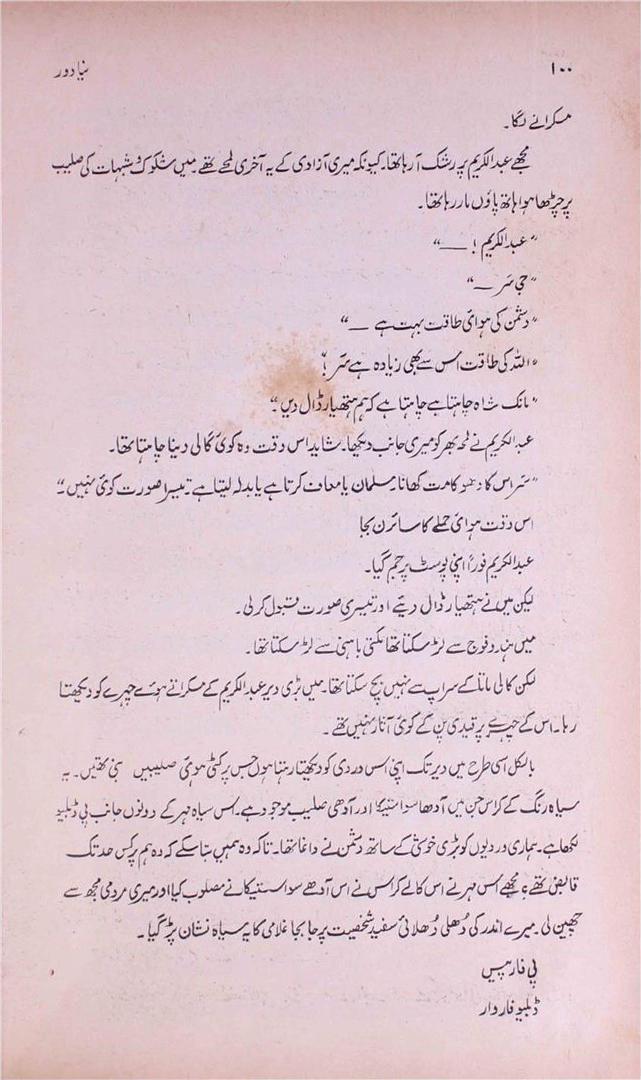 ۱۰۰ نیا دور
مسکرانے لگا۔
مجھے عبدالکریم پر رشک آرہا تھا۔ کیونکہ میری آزادی کے یہ آخری لمحے تھے۔ میں شکوک و شبہات کی صلیب
پر چڑھا ہوا ہاتھ پاؤں مار رہا تھا۔
"عبدالکریم! ــــ"
"جی سَر ــ"
"دشمن کی ہوائی طاقت بہت ہے ــ"
"اللہ کی طاقت اس سے بھی زیادہ ہے سَر!"
"مانک شاہ چاہتا ہے چاہتا ہے کہ ہم ہتھیار ڈال دیں۔"
عبدالکریم نے لمحہ بھر کو میری جانب دیکھا۔ شاید اس وقت وہ کوئی گالی دینا چاہتا تھا۔
"سَر اس کا دھوکا مت کھانا۔ مسلمان یا معاف کرتا ہے یا بدلہ لیتا ہے۔ تیسرا صورت کوئی نہیں۔"
اس وقت ہوائی حملے کا سائرن بجا
عبدالکریم فوراً اپنی پوسٹ پر جم گیا۔
لیکن میں نے ہتھیار ڈال دیئے اور تیسری صورت قبول کرلی۔
میں ہندو فوج سے لڑ سکتا تھا مکتی باہنی سے لڑ سکتا تھا۔
لیکن کالی ماتا کے سراپ سے نہیں بچ سکتا تھا۔ میں بڑی دیر عبدالکریم کے مسکراتے ہوئے چہرے کو دیکھتا
رہا۔ اس کے چہرے پر قیدی پن کے کوئی آثار نہیں تھے۔
بالکل اسی طرح میں دیر تک اپنی اس وردی کو دیکھتا رہتا ہوں جس پر کٹی ہوئی صلیبیں بنی تھیں۔ یہ
سیاہ رنگ کے کراس جن میں آدھا سواستیکا اور آدھی صلیب موجود ہے۔ اس سیاہ مہر کے دونوں جانب پی ڈبلیو
لکھا ہے۔ ہماری وردیوں کو بڑی خوشی کے ساتھ دشمن نے داغا تھا۔ تاکہ وہ ہمیں بتا سکے کہ وہ ہم پر کس حد تک
قابض تھے، مجھے اس مہر نے اس کالے کراس نے اس آدھے سواستیکا نے مصلوب کیا اور میری مردمی مجھ سے
چھین لی۔ میرے اندر کی دُھلی دُھلائی سفید شخصیت پر جابجا غلامی کا یہ سیاہ نشان پڑ گیا۔
پی فار پیس
ڈبلیو فار وار